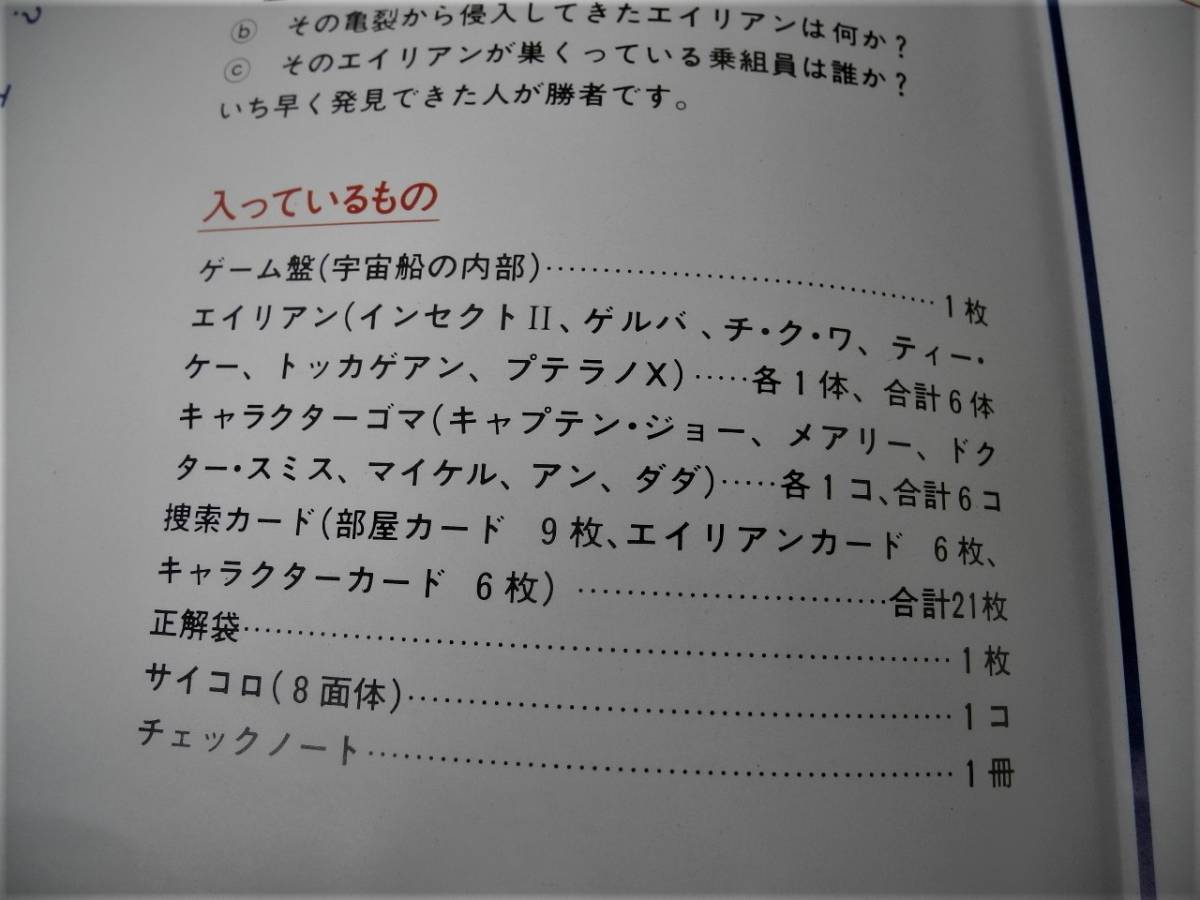 ⓑ その亀裂から侵入してきたエイリアンは何か?
ⓒ そのエイリアンが巣くっている乗組員は誰か?
いち早く発見できた人が勝者です。
入っているもの
ゲーム盤(宇宙船の内部)……………………………1枚
エイリアン(インセクトII、ゲルバ、チ・ク・ワ、ティー・
ケー、トッカゲアン、プテラノX)……各1体、合計6体
キャラクターゴマ(キャプテン・ジョー、メアリー、ドク
ター・スミス、マイケル、アン、ダダ)……各1コ、合計6コ
捜索カード(部屋カード 9枚、エイリアンカード 6枚、
キャラクターカード 6枚)……………………合計21枚
正解袋……………………………………………………1枚
サイコロ(8面体)………………………………………1コ
チェックノート…………………………………………1冊